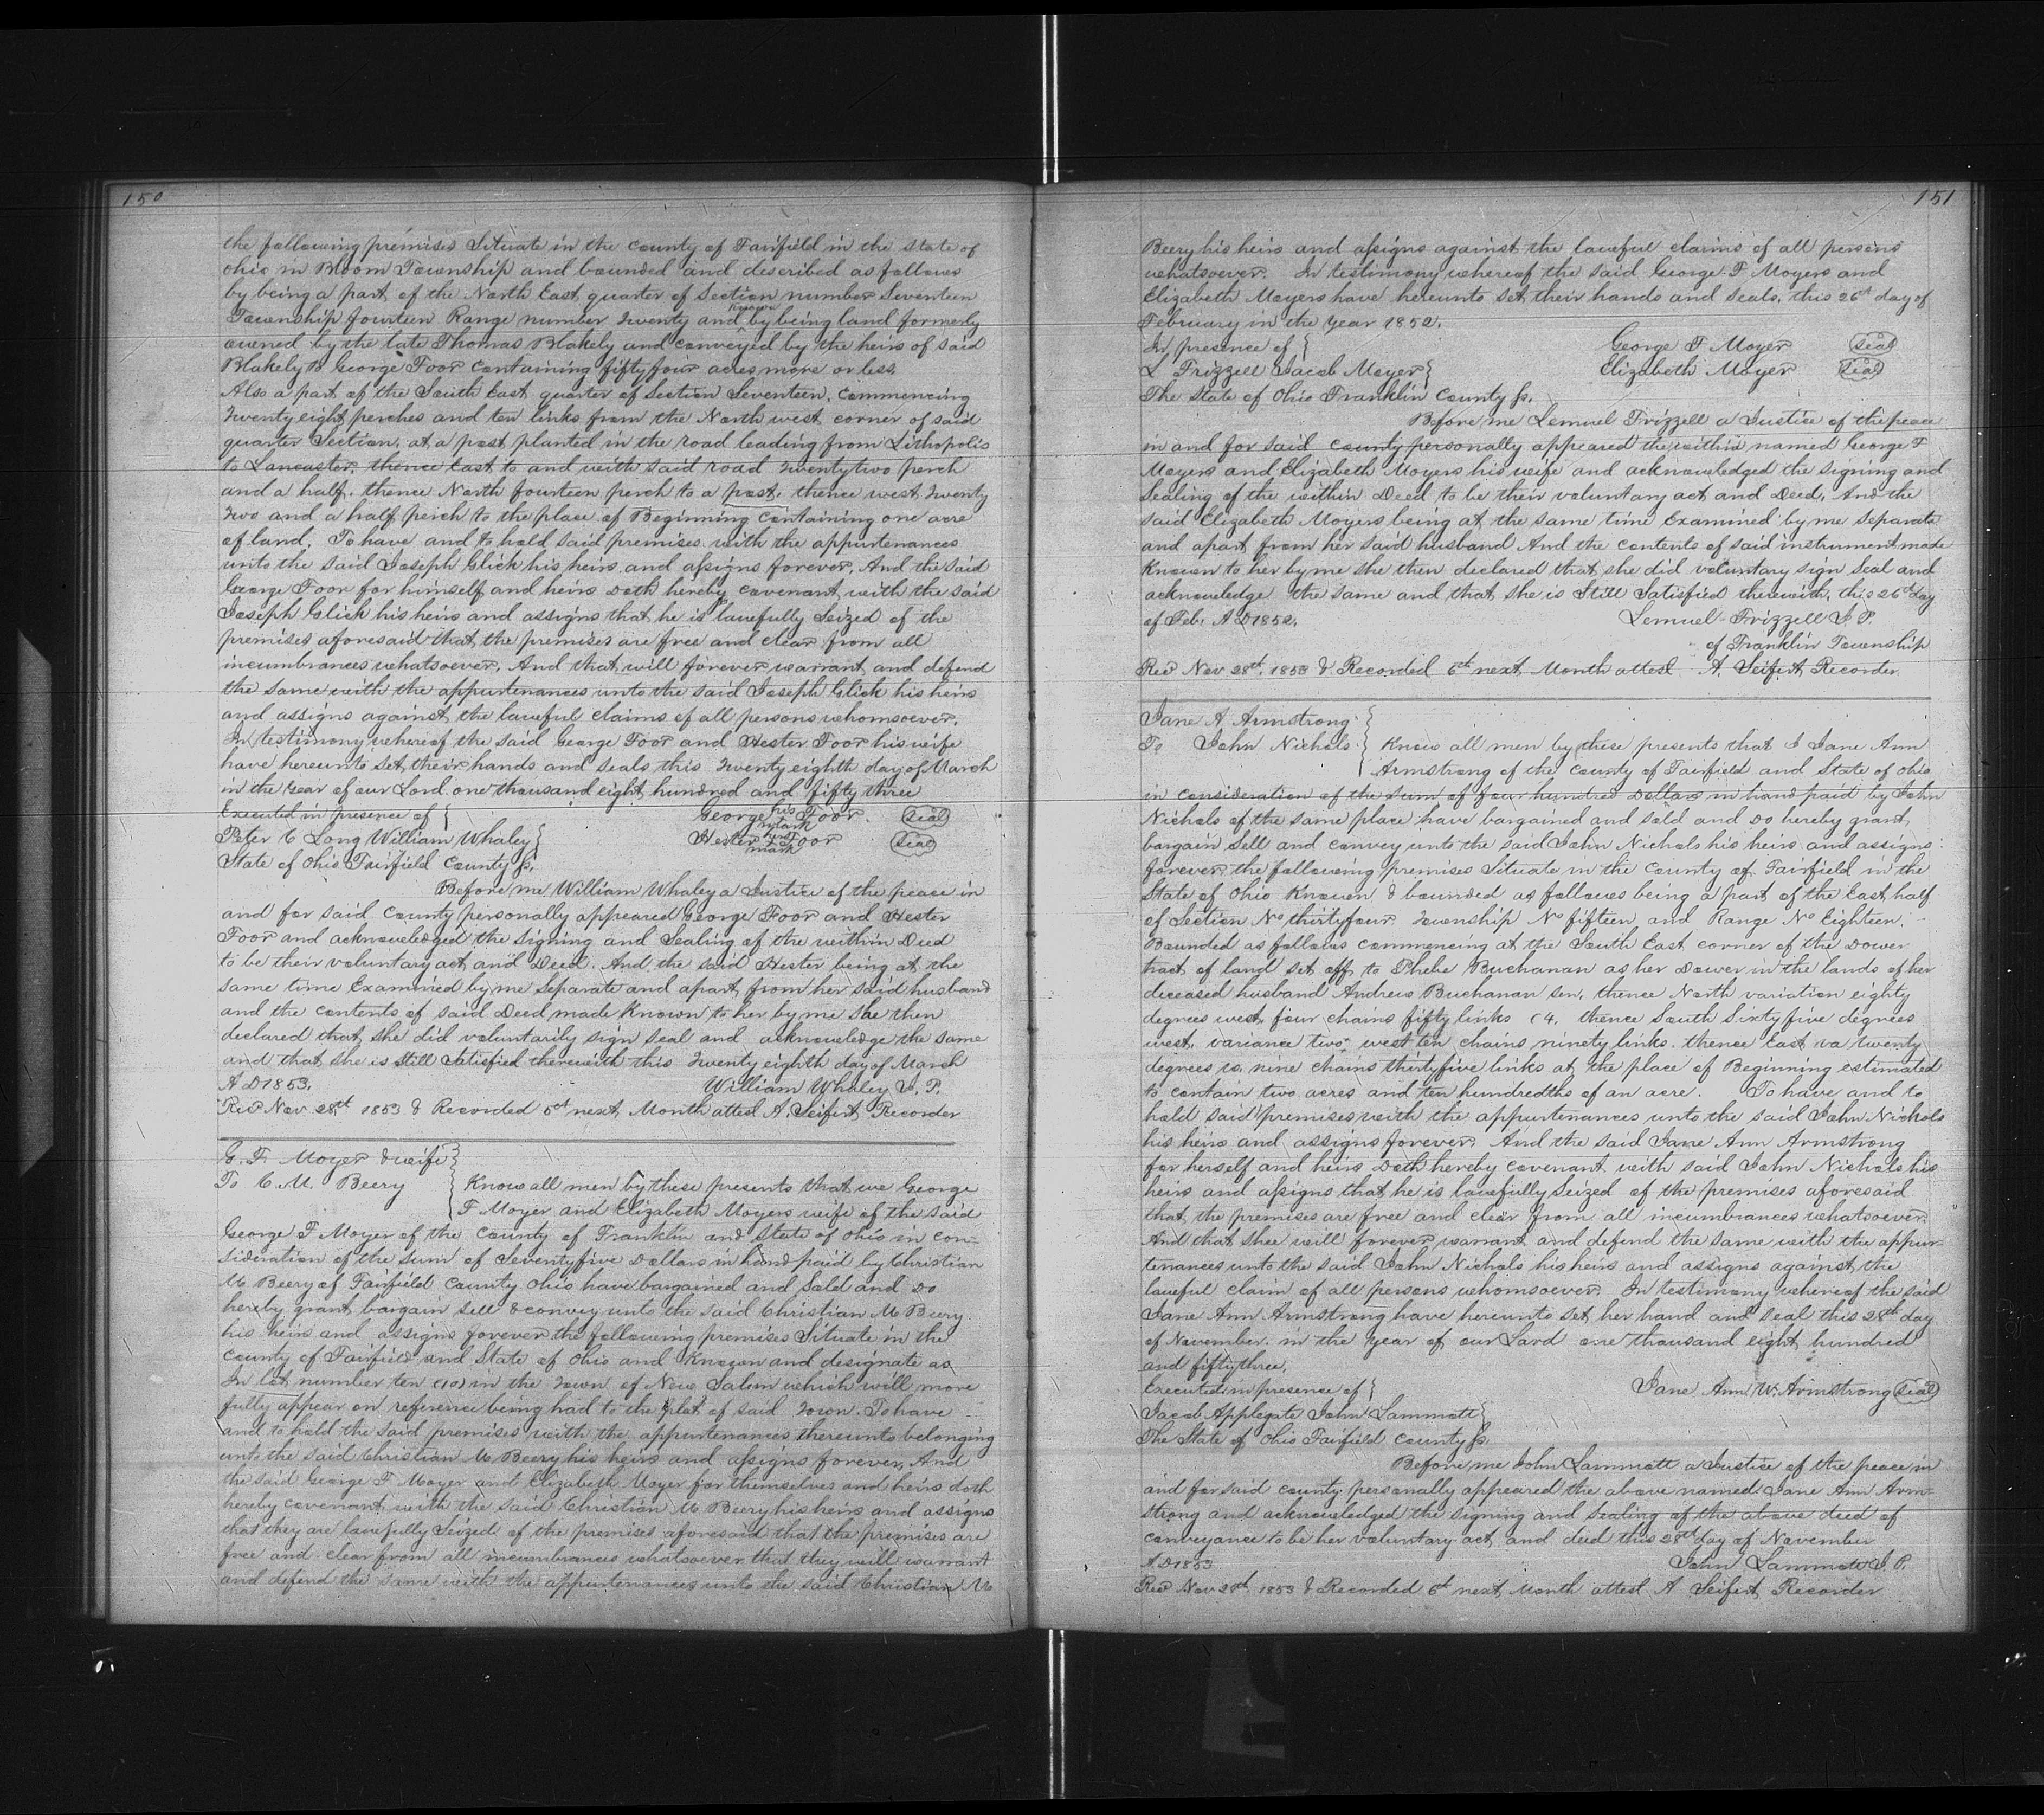 150
the following premises Situate in the county of Fairfield in the state of
ohio in Bloom Township and bounded and described as follows
by being a part of the North East quarter of Section number Seventeen
Township fourteen Range number Twenty and Known by being land formerly
owned by the late Thomas Blakely and conveyed by the heirs of said
Blakely to George Foor Containing fifty four acres more or less.
Also a part of the South East quarter of Section Seventeen. Commencing
Twenty eight perches and ten links from the North west corner of said
quarter Section, at a post planted in the road leading from Lithopolis
to Lancaster, thence East to and with said road Twenty two perch
and a half, thence North fourteen perch to a post, thence west Twenty
Two and a half perch to the place of Beginning Containing one acre
of land. To have and to hold said premises with the appurtenances
unto the said Joseph Glick his heirs and assigns forever. And the said
George Foor for himself and heirs Doth hereby Covenant with the said
Joseph Glick his heirs and assigns that he is lawfully Seized of the
premises aforesaid that the premises are free and clear from all
incumbrances whatsoever. And that will forever warrant and defend
the same with the appurtenances unto the said Joseph Glick his heirs
and assigns against the lawful claims of all persons whomsoever.
In testimony whereof the said George Foor and Hester Foor his wife
have hereunto set their hands and seals this Twenty eighth day of March
in the Year of our Lord one thousand eight hundred and fifty three
Executed in presence of } George his mark Foor (Seal)
Peter C Long William Whaley } Hester her mark Foor (Seal)
State of Ohio Fairfield County ss.
Before me William Whaley a Justice of the peace in
and for said County personally appeared George Foor and Hester
Foor and acknowledged the Signing and Sealing of the within Deed
to be their voluntary act and Deed. And the said Hester being at the
same time Examined by me Separate and apart from her said husband
and the contents of said Deed made Known to her by me She then
declared that she did voluntarily sign seal and acknowledge the same
and that she is Still Satisfied therewith this Twenty eighth day of March
A D 1853. William Whaley J. P.
Recd Nov 28th 1853 & Recorded 5th next Month attest A. Seifert Recorder
G. F. Moyer & wife }
To C. M. Beery { Know all men by these presents that we George
F Moyer and Elizabeth Moyers wife of the said
George F Moyer of the County of Franklin and State of Ohio in con-
sideration of the sum of Seventy five Dollars in hand paid by Christian
M Beery of Fairfield County Ohio have bargained and Sold and do
hereby grant bargain sell & convey unto the said Christian M Beery
his heirs and assigns forever the following premises Situate in the
County of Fairfield and State of Ohio and Known and designate as
In lot number ten (10) in the Town of New Salem which will more
fully appear on reference being had to the plat of said Town. To have
and to hold the said premises with the appurtenances thereunto belonging
unto the said Christian M Beery his heirs and assigns forever, And
the said George F Moyer and Elizabeth Moyer for themselves and heirs doth
hereby covenant with the said Christian M Beery his heirs and assigns
that they are lawfully Seized of the premises aforesaid that the premises are
free and clear from all incumbrances whatsoever that they will warrant
and defend the same with the appurtenances unto the said Christian M
151
Beery his heirs and assigns against the lawful claims of all persons
whatsoever. In testimony whereof the said George F Moyers and
Elizabeth Moyers have hereunto set their hands and seals, this 26th day of
February in the Year 1852.
In presence of { George F Moyer (Seal)
L Frizzell Jacob Moyer } Elizabeth Moyer (Seal)
The State of Ohio Franklin County ss.
Before me Lemuel Frizzell a Justice of the peace
in and for said county personally appeared the within named George F
Moyers and Elizabeth Moyers his wife and acknowledged the signing and
Sealing of the within Deed to be their voluntary act and Deed. And the
said Elizabeth Moyers being at the same time Examined by me separate
and apart from her said husband And the contents of said instrument made
Known to her by me she then declared that she did voluntary sign Seal and
acknowledge the same and that she is Still Satisfied therewith, this 26th day
of Feb. A D 1852. Lemuel Frizzell J. P.
of Franklin Township
Recd Nov 28th, 1853 & Recorded 6th next Month attest A. Seifert Recorder.
Jane A Armstrong }
To John Nichols { Know all men by these presents that I Jane Ann
Armstrong of the County of Fairfield and State of Ohio
in consideration of the sum of four hundred Dollars in hand paid by John
Nichols of the same place have bargained and sold and Do hereby grant
bargain Sell and convey unto the said John Nichols his heirs and assigns
forever the following premises Situate in the County of Fairfield in the
State of Ohio Known & bounded as follows being a part of the East half
of Section No thirty four Township No fifteen and Range No Eighteen.
Bounded as follows commencing at the South East corner of the Dower
tract of land set off to Phebe Buchanan as her Dower in the lands of her
deceased husband Andrew Buchanan sen. thence North variation eighty
degrees west, four chains fifty links (4, thence South Sixty five degrees
west, variance two, west ten chains ninety links. thence East va twenty
degrees w. nine chains thirty five links at the place of Beginning estimated
to contain two acres and ten hundredths of an acre. To have and to
hold said premises with the appurtenances unto the said John Nichols
his heirs and assigns forever. And the said Jane Ann Armstrong
for herself and heirs Doth hereby covenant with said John Nichols his
heirs and assigns that he is lawfully Seized of the premises aforesaid
that the premises are free and clear from all incumbrances whatsoever
And that shee will forever warrant and defend the same with the appur-
tenances unto the said John Nichols his heirs and assigns against the
lawful claim of all persons whomsoever. In testimony whereof the said
Jane Ann Armstrong have hereunto set her hand and seal this 28th day
of November in the Year of our Lord one thousand eight hundred
and fifty three.
Executed in presence of { Jane Ann W. Armstrong (Seal)
Jacob Applegate John Lammott }
The State of Ohio Fairfield County ss.
Before me John Lammott a Justice of the peace in
and for said county personally appeared the above named Jane Ann Arm-
strong and acknowledged the signing and Sealing of the above deed of
conveyance to be her voluntary act and deed this 28th day of November
A. D 1853 John Lammott J. P.
Recd Nov 28th, 1853 & Recorded 6th next Month attest A Seifert Recorder